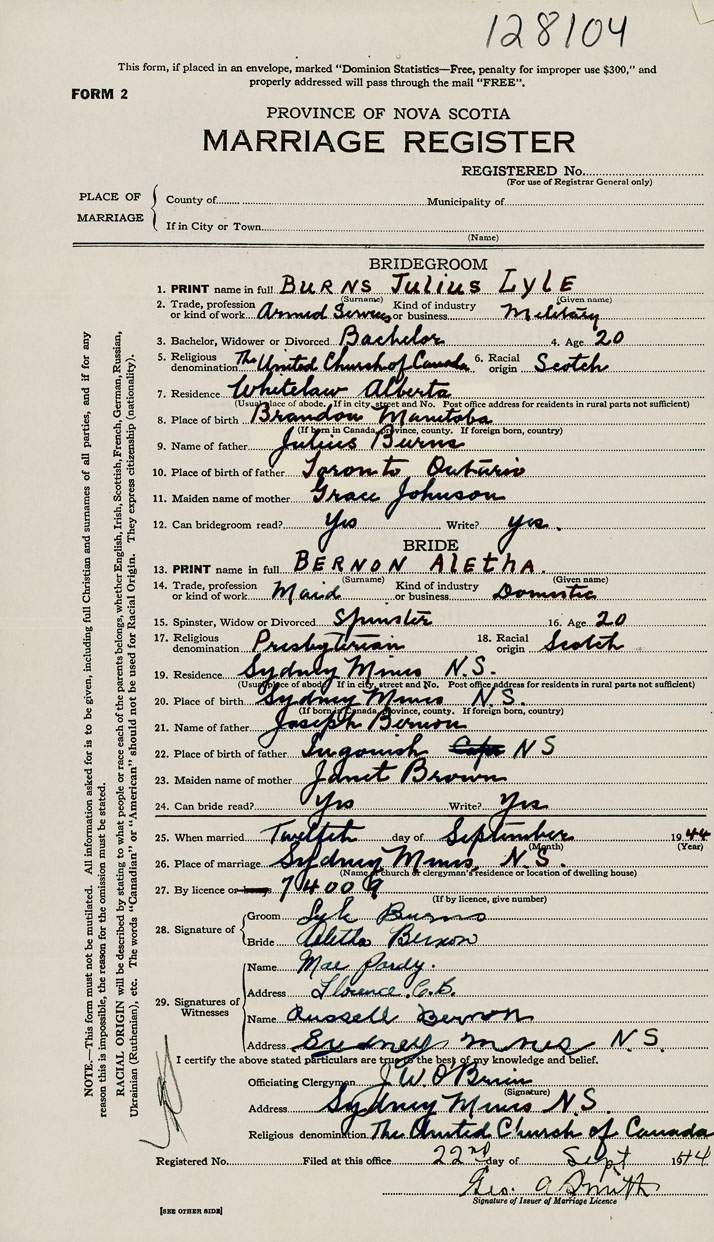 128104
This form, if placed in an envelope, marked "Dominion Statistics—Free, penalty for improper use $300," and
properly addressed will pass through the mail "FREE".
FORM 2
PROVINCE OF NOVA SCOTIA
MARRIAGE REGISTER
REGISTERED No.
(For use of Registrar General only)
PLACE OF MARRIAGE
County of Municipality of
If in City or Town
(Name)
BRIDEGROOM
1. PRINT name in full BURNS Julius LYLE
(Surname) (Given name)
2. Trade, profession or kind of work Armed Services Kind of industry or business Military
3. Bachelor, Widower or Divorced Bachelor 4. Age 20
5. Religious denomination The United Church of Canada 6. Racial origin Scotch
7. Residence Whitelaw Alberta
(Usual place of abode. If in city, street and No. Post office address for residents in rural parts not sufficient)
8. Place of birth Brandon Manitoba
(If born in Canada, province, county. If foreign born, country)
9. Name of father Julius Burns
10. Place of birth of father Toronto Ontario
11. Maiden name of mother Grace Johnson
12. Can bridegroom read? Yes Write? yes.
BRIDE
13. PRINT name in full BERNON Aletha.
(Surname) (Given name)
14. Trade, profession or kind of work Maid Kind of industry or business Domestic
15. Spinster, Widow or Divorced Spinster 16. Age 20
17. Religious denomination Presbyterian 18. Racial origin Scotch
19. Residence Sydney Mines N.S.
(Usual place of abode. If in city, street and No. Post office address for residents in rural parts not sufficient)
20. Place of birth Sydney Mines N.S.
(If born in Canada, province, county. If foreign born, country)
21. Name of father Joseph Bernon
22. Place of birth of father Ingonish Cape N S
23. Maiden name of mother Janet Brown
24. Can bride read? Yes Write? Yes
25. When married Twelfth day of September 1944
(Month) (Year)
26. Place of marriage Sydney Mines, N.S.
(Name of church or clergyman's residence or location of dwelling house)
27. By licence or banns 74009
(If by licence, give number)
28. Signature of
Groom Lyle Burns
Bride Aletha Bernon
29. Signatures of Witnesses
Name Mae Pardy.
Address Florence, C.B.
Name Russell Bernon
Address Sydney Mines N.S.
I certify the above stated particulars are true to the best of my knowledge and belief.
Officiating Clergyman J.W. O'Brien
(Signature)
Address Sydney Mines N.S.
Religious denomination The United Church of Canada
Registered No. Filed at this office 22nd day of Sept 1944
Geo. A Smith
Signature of Issuer of Marriage Licence
[SEE OTHER SIDE]
NOTE.—This form must not be mutilated. All information asked for is to be given, including full Christian and surnames of all parties, and if for any
reason this is impossible, the reason for the omission must be stated.
RACIAL ORIGIN will be described by stating to what people or race each of the parents belongs, whether English, Irish, Scottish, French, German, Russian,
Ukrainian (Ruthenian), etc. The words "Canadian" or "American" should not be used for Racial Origin. They express citizenship (nationality).